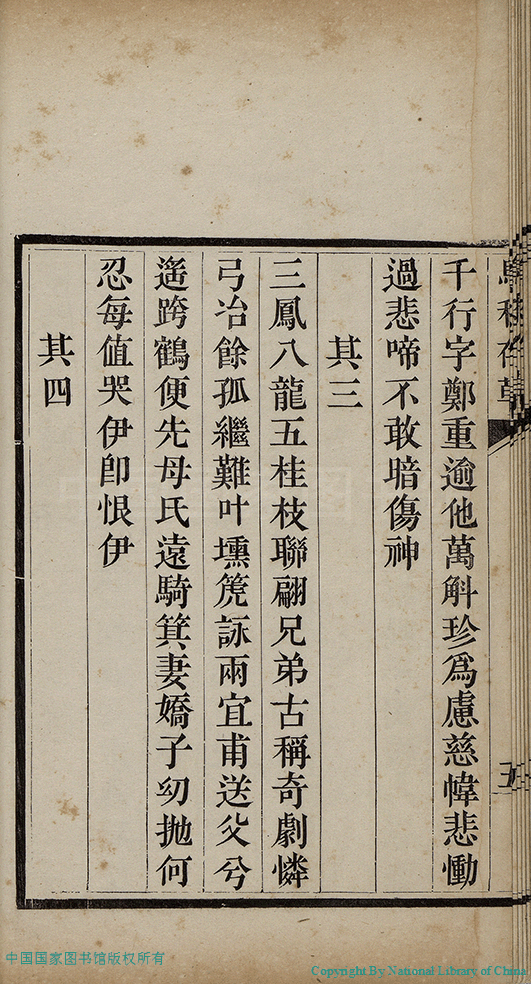 千行字鄭重逾他萬斛珍爲慮慈幃悲慟
過悲啼不敢暗傷神
其三
三鳳八龍五桂枝聯翩兄弟古稱奇劇憐
弓冶餘孤繼難叶壎箎詠兩宜甫送父兮
遙跨鶴便先母氏遠騎箕妻嬌子幼拋何
忍每值哭伊卽恨伊
其四
五
中国国家图书馆版权所有
Copyright By National Library of China